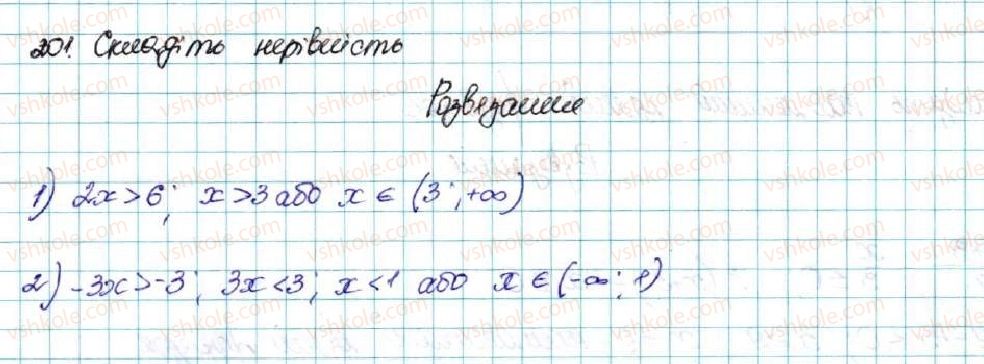 201. Складіть нерівність
Розвязання
1) 2x>6; x>3 або x ∈ (3; +∞)
2) -3x>-3; 3x<3; x<1 або x ∈ (-∞; 1)
vshkole.com